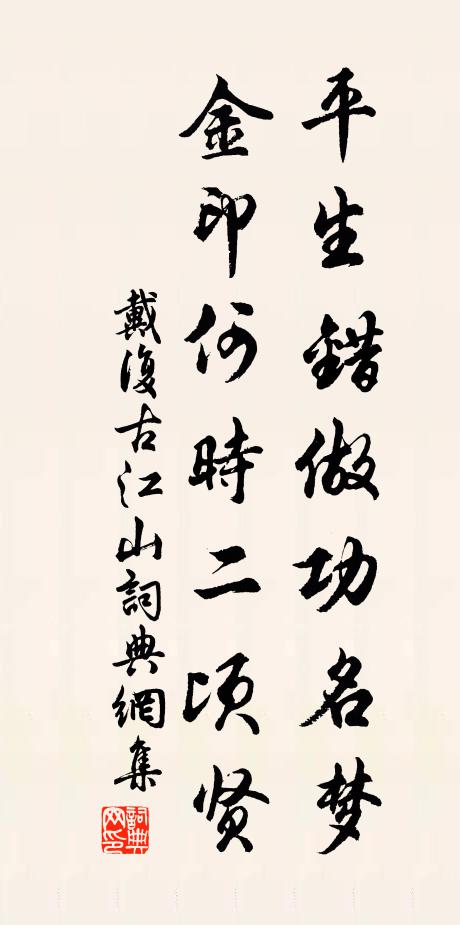 平生錯做功名梦
金印何時二顷贤
戴復古江山詞典網集
詞典
网印